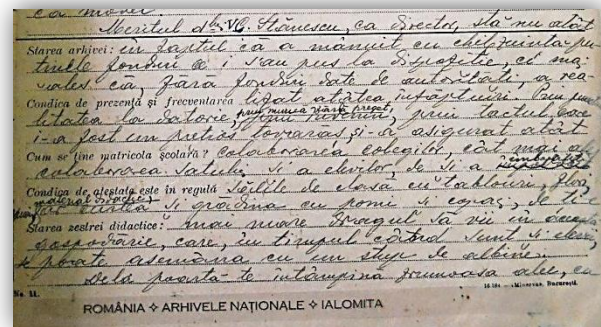 ca moșii
Meritul dlui VG. Stănescu, ca director, stă nu atât
Starea arhivei: în faptul că a mânuit cu chibzuință pu-
ținele fonduri ce i s'au pus la dispoziție, ci mai
ales că, fără fonduri date de autorități, a rea-
Condica de prezență și frecventarea lizat atâtea înfăptuiri. Prin punc
prin muncă
litatea la datorie, prin prin tactul care
i-a fost un prețios tovarăș, și-a asigurat atât
Cum se ține matricola școlară? colaborarea colegilor cât mai ales
colaborarea satului și a elevilor, de și-a
Condica de atestate este în regulă sălile de clasă cu tablouri, flori,
material didactic,
curtea și grădina cu pomi și copaci, de ți-e
Starea zestrei didactice: mai mare dragul să vii în
gospodărie, care, în timpul când sunt și elevi,
poate asemăna cu un stup de albine.
Dela poartă te întâmpină frumoasa alee, cu
No. 31.
Minerva, București.
ROMÂNIA ✧ ARHIVELE NAȚIONALE ✧ IALOMITA